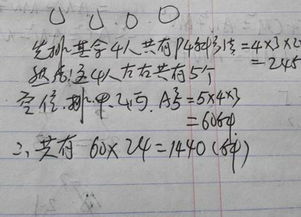 先排其余4人共有P4种排法=4×3×2
=24种
然后这4人左右共有5个
空位.排甲.乙丙.A³₅=5×4×3
=60种
∴共有 60×24=1440(种)